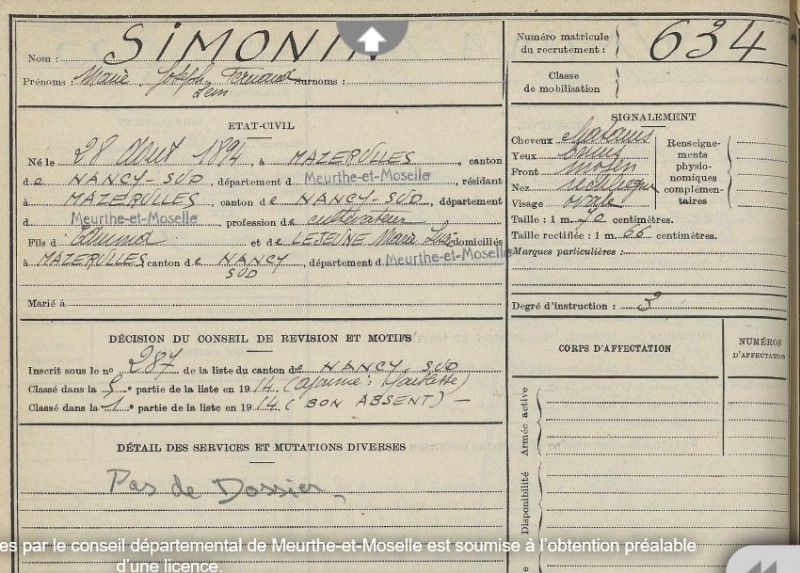 Nom : SIMONIN
Prénoms : Marie Joseph Fernand Surnoms :
Léon
ETAT-CIVIL
Né le 28 Août 1894, à MAZERULLES, canton
de NANCY-SUD, département d Meurthe-et-Moselle, résidant
à MAZERULLES, canton de NANCY-SUD, département
d Meurthe-et-Moselle, profession de cultivateur
Fils d' Edmond et de LEJEUNE Marie domiciliés
à MAZERULLES canton de NANCY SUD, département d Meurthe-et-Moselle
Marié à
DÉCISION DU CONSEIL DE REVISION ET MOTIFS
Inscrit sous le no 287 de la liste du canton de NANCY SUD
Classé dans la 5e partie de la liste en 1914 (ajourné :
Classé dans la 1e partie de la liste en 1914 (BON ABSENT) -
DÉTAIL DES SERVICES ET MUTATIONS DIVERSES
Pas de Dossier
Numéro matricule
du recrutement : 634
Classe
de mobilisation
SIGNALEMENT
Cheveux chatains
Yeux
Front moyen
Nez rectiligne
Visage ovale
Renseigne-
ments
physio-
nomiques
complémen-
taires
Taille : 1 m. centimètres.
Taille rectifiée : 1 m. 66 centimètres.
Marques particulières :
Degré d'instruction : 3
CORPS D'AFFECTATION
NUMÉROS
D'AFFECTATION
Armée active
Disponibilité
es par le conseil départemental de Meurthe-et-Moselle est soumise à l'obtention préalable
d'une licence.